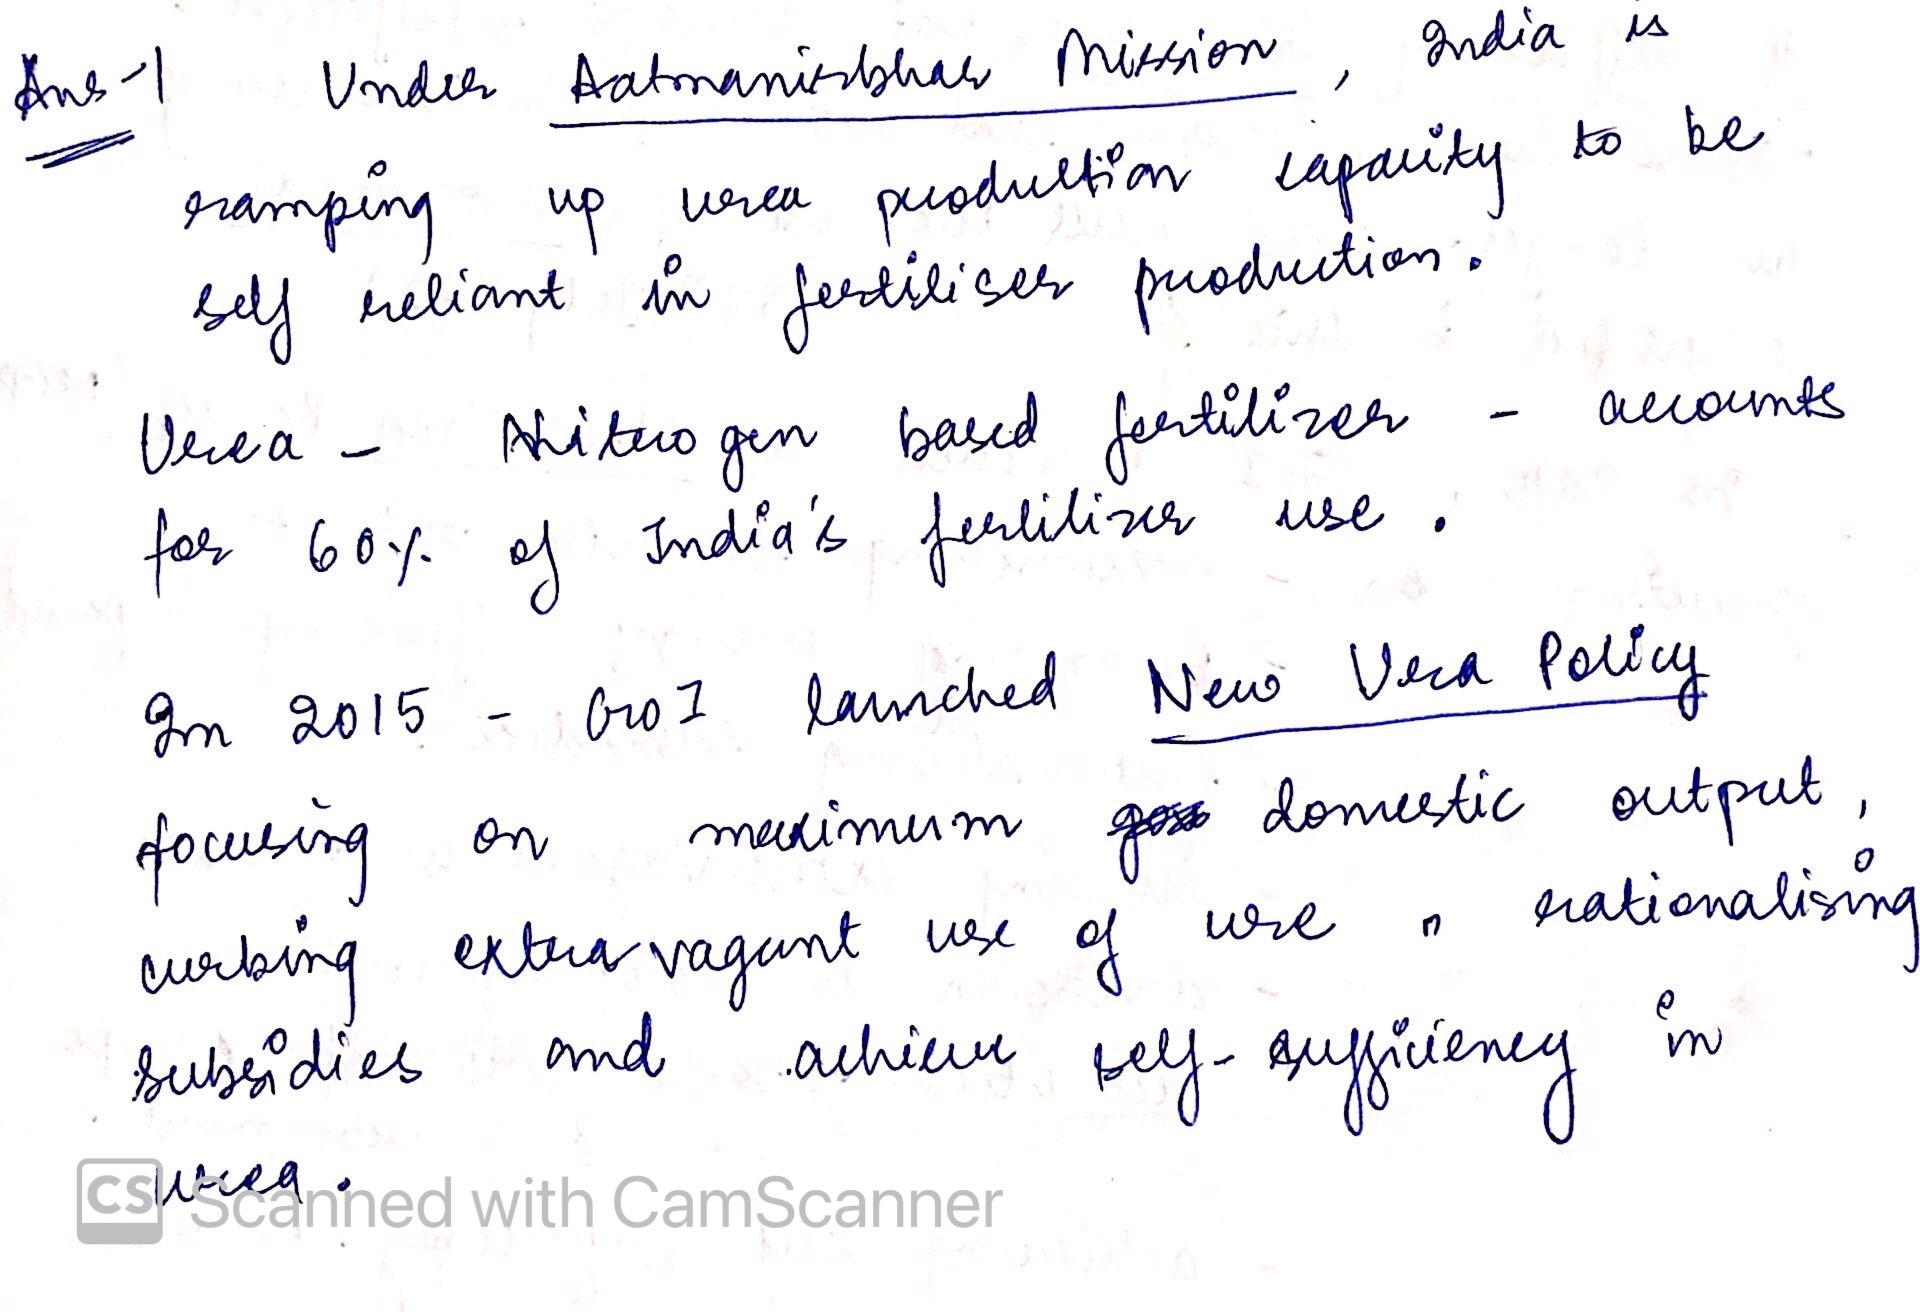 Ans-1 Under Aatmanirbhar Mission, India is
ramping up urea production capacity to be
self reliant in fertiliser production.
Urea - Nitrogen based fertilizer - accounts
for 60% of India's fertilizer use.
In 2015 - GoI launched New Urea Policy
focusing on maximum domestic output,
curbing extravagant use of use, rationalising
subsidies and achieve self-sufficiency in
urea.
CS Scanned with CamScanner